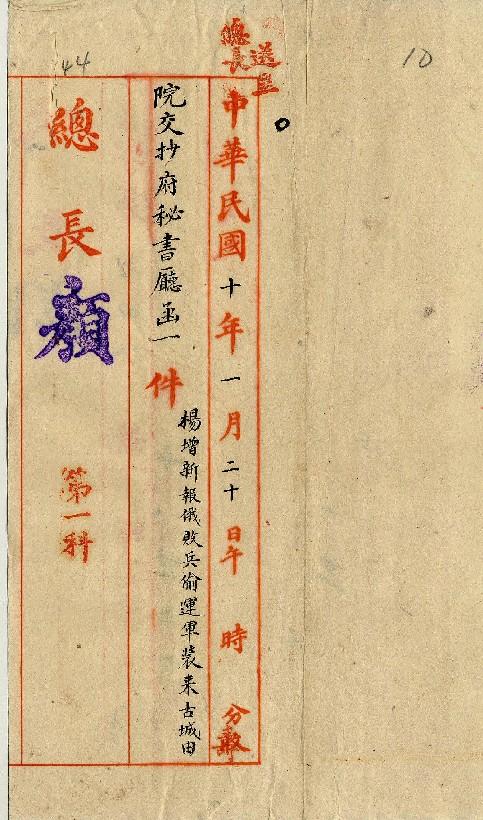 10
送呈
總長
中華民國十年一月二十日午 時 分
院交抄府秘書廳函一件
楊增新報俄敗兵偷運軍裝来古城由
總長顏
第一科
44